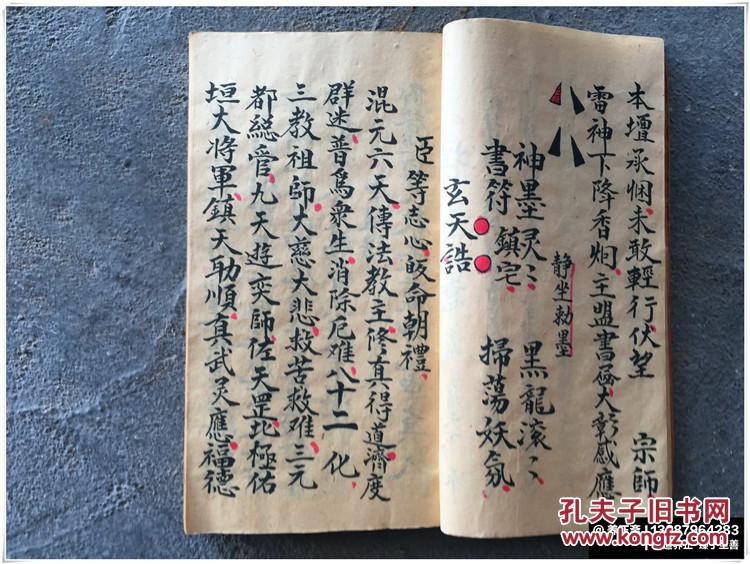 本壇承悃未敢輕行伏望　宗師
雷神下降香炯主盟書篆大彰感應
八八
靜坐勅墨
神墨灵〻　黑龍滾〻
書符鎮宅　掃荡妖氛
玄天誥
臣等志心皈命朝禮
混元六天傳法教主修真得道濟度
群迷普爲衆生消除厄难八十二化
三教祖師大慈大悲救苦救难三元
都緫管九天遊奕師佐天罡北極佑
垣大將軍鎮天助順真武灵應福德
孔夫子旧书网
www.kongfz.com